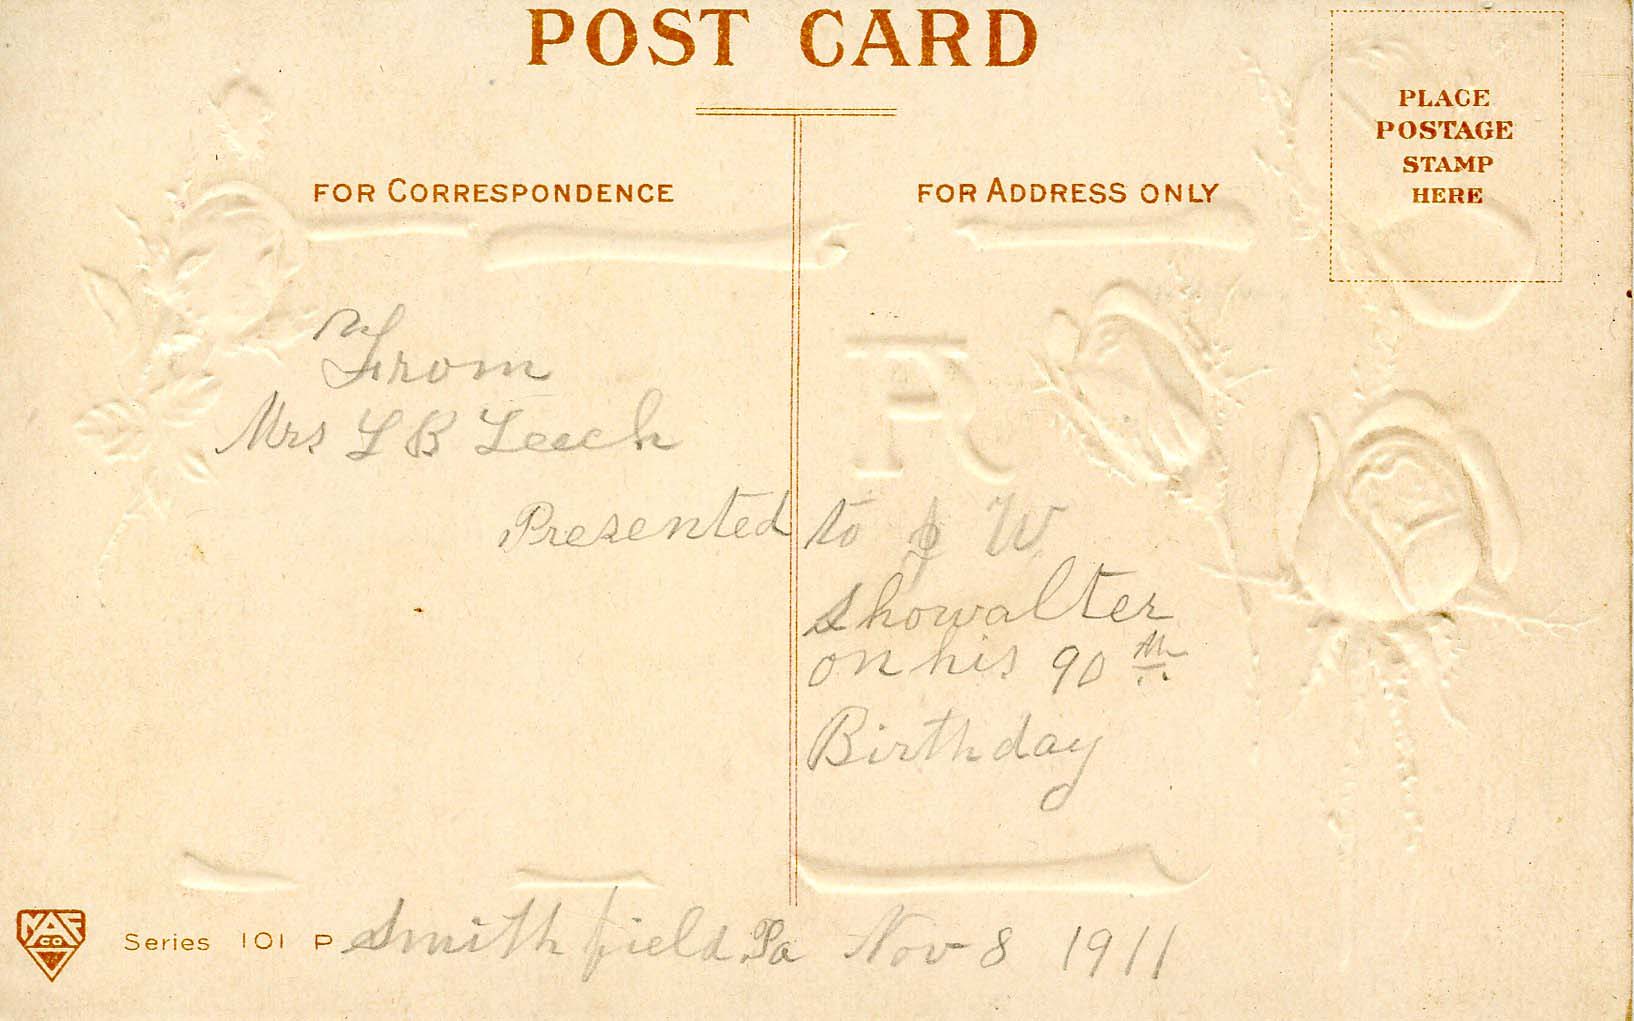 POST CARD
PLACE
POSTAGE
STAMP
HERE
FOR CORRESPONDENCE
FOR ADDRESS ONLY
From
Mrs L B Leech
Presented to J W
Showalter
on his 90th
Birthday
Series 101 P
Smithfield Pa Nov 8 1911